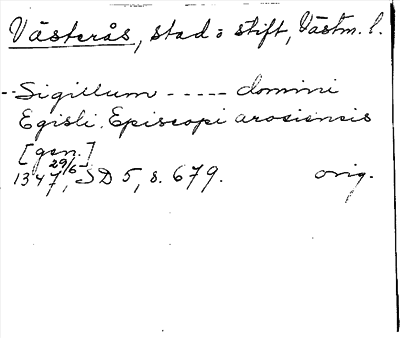 Västerås, stad o stift, Västm. l.
-- Sigillum ----- domini
Egisli. Episcopi arosiensis
[gen.]
1347 29/6, SD 5, s. 679. orig.